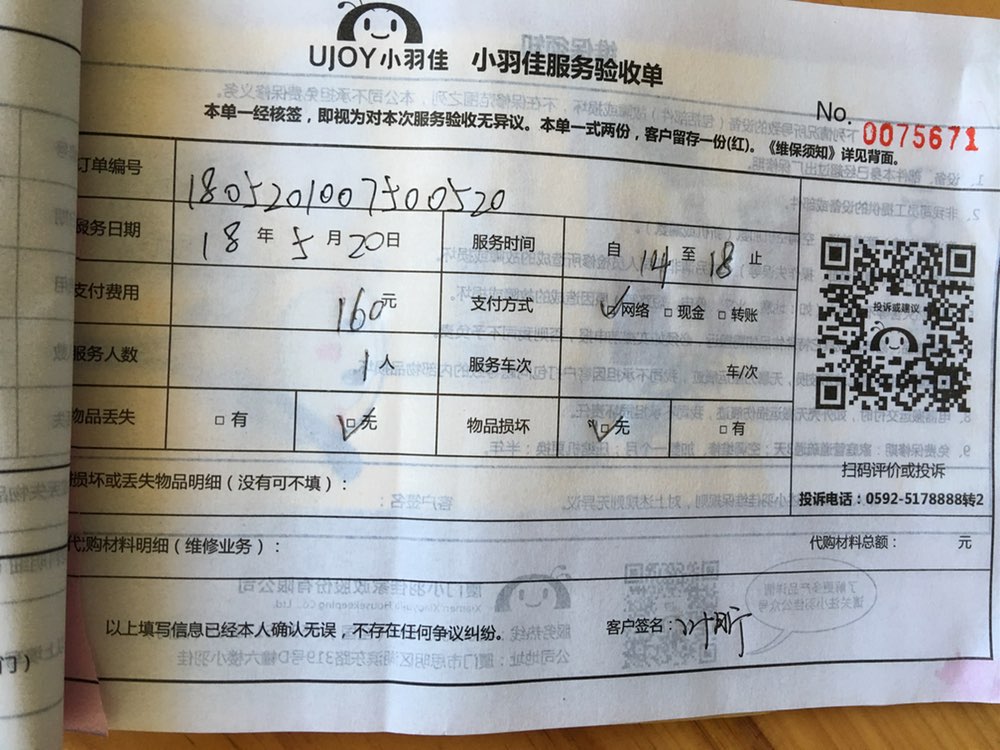 UJOY小羽佳 小羽佳服务验收单
No. 0075671
本单一经核签，即视为对本次服务验收无异议。本单一式两份，客户留存一份(红)。《维保须知》详见背面。
订单编号 1805201007500520
服务日期 18 年 5 月 20 日 服务时间 自 14 至 18 止
支付费用 160元 支付方式 ☑网络 □现金 □转账
服务人数 1人 服务车次 车/次
物品丢失 □有 ☑无 物品损坏 ☑无 □有
投诉或建议
扫码评价或投诉
投诉电话：0592-5178888转2
损坏或丢失物品明细（没有可不填）：
代购材料明细（维修业务）： 代购材料总额： 元
以上填写信息已经本人确认无误，不存在任何争议纠纷。 客户签名：